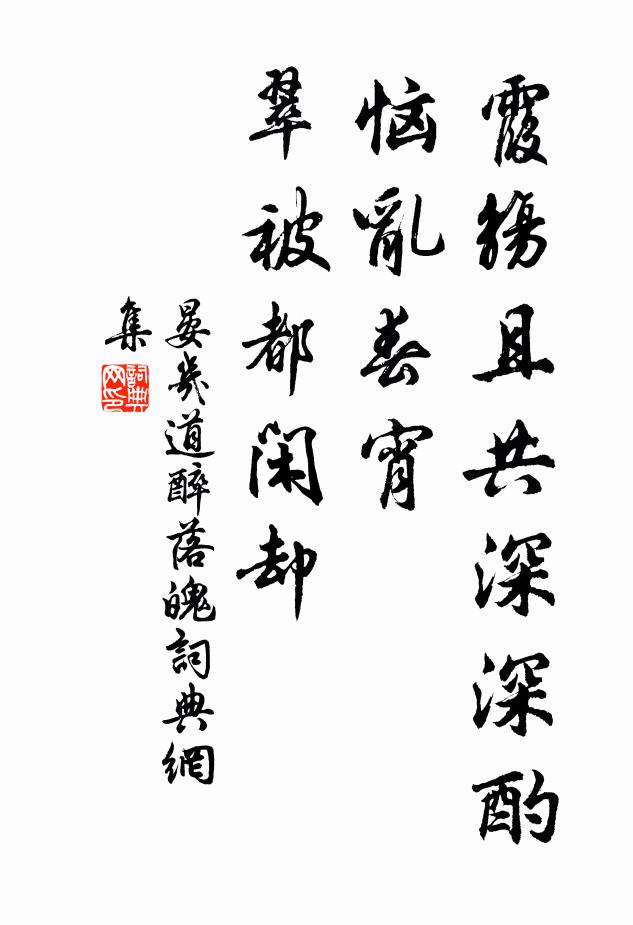 霞觴且共深深酌
恼亂春宵
翠被都闲却
晏幾道醉落魄詞典網
集
詞典网印